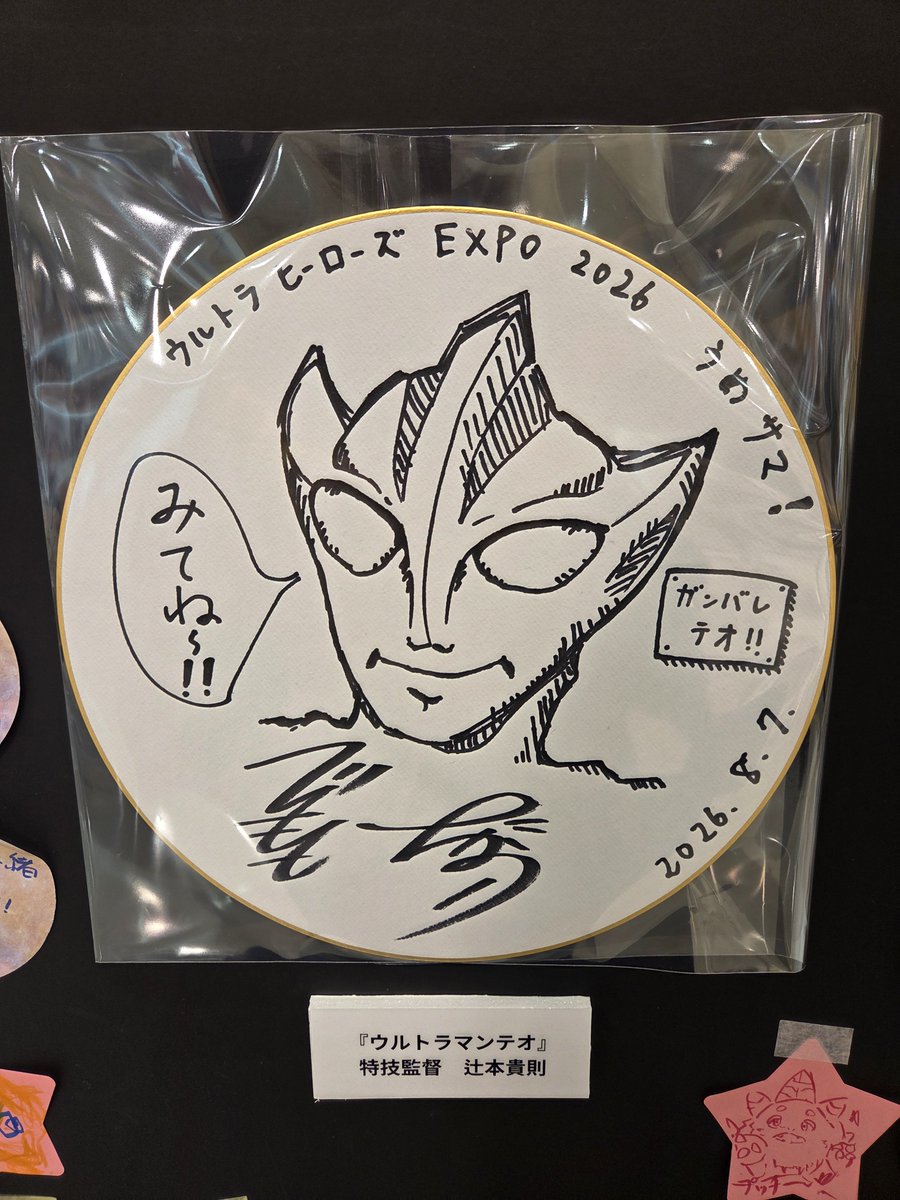 ウルトラヒーローズ EXPO 2026
うめきて!
みてね〜!!
ガンバレ
テオ!!
2026. 8. 7.
『ウルトラマンテオ』
特技監督 辻本貴則
緒
!
プッチ〜